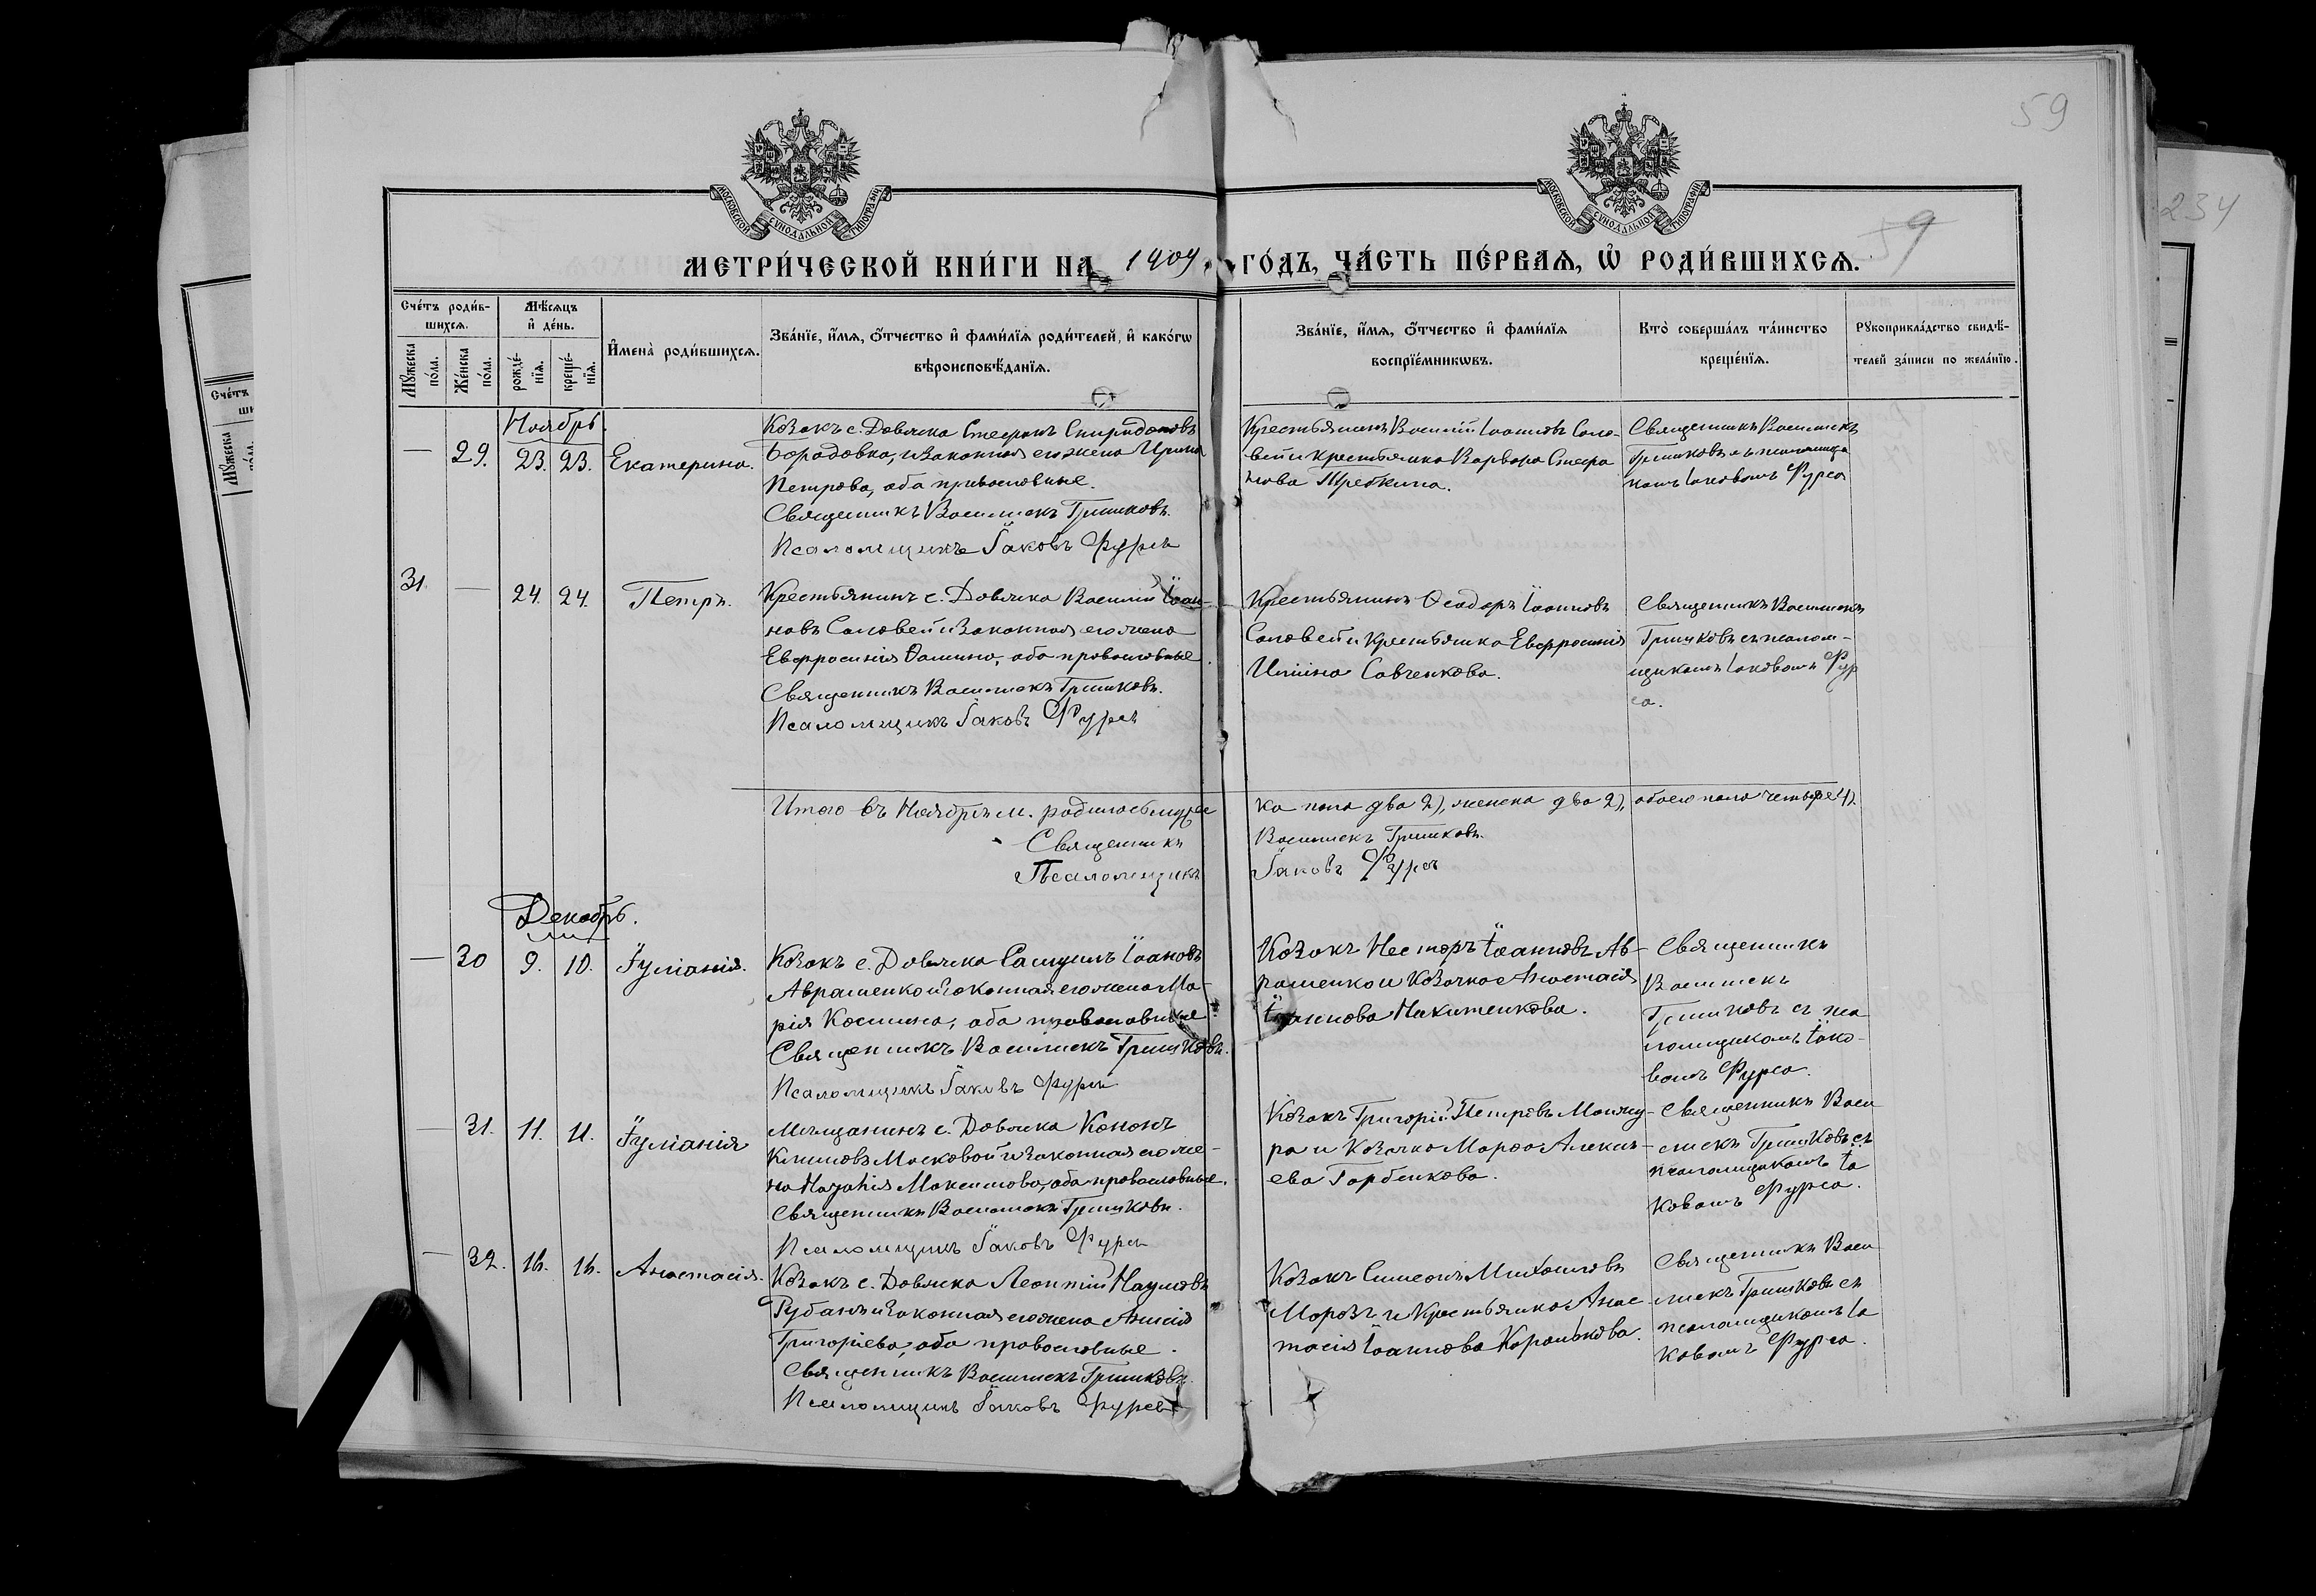 59
59
234
МОСКОВСКОЙ СѴНОДАЛЬНОЙ ТИПОГРАФІИ
МОСКОВСКОЙ СѴНОДАЛЬНОЙ ТИПОГРАФІИ
МЕТРИ́ЧЕСКОЙ КНИ́ГИ НА 1909 ГО́ДЪ, ЧА́СТЬ ПЕ́РВАЯ, Ѡ҆ РОДИ́ВШИХСЯ.
Сче́тъ роди́в-
шихся.
Мѣ́сяцъ
и҆ де́нь.
Мꙋ́жеска по́ла.
Же́нска по́ла.
рожде́-
нїя.
креще́-
нїя.
И҆мена̀ роди́вшихся.
Зва́нїе, и҆́мя, ѻ҆́тчество и҆ фами́лїя роди́телей, и҆ како́гѡ
вѣроисповѣ́данїя.
Зва́нїе, и҆́мя, ѻ҆́тчество и҆ фами́лїя
воспрїе́мникѡвъ.
Кто̀ соверша́лъ та́инство
креще́нїя.
Рꙋкоприкла́дство свидѣ́-
телей за́писи по жела́нїю.
Ноябрь.
— 29. 23. 23. Екатерина.
Козакъ с. Довжика Стефанъ Спиридоновъ
Бородавка, и законная его жена Ирина
Петрова, оба православные.
Священникъ Василискъ Гришковъ.
Псаломщикъ Іаковъ Фурса
Крестьянинъ Василій Іоанновъ Соло-
вей и крестьянка Варвара Стефа
нова
Священникъ Василискъ
Гришковъ съ псаломщи
комъ Іаковомъ Фурса
31. — 24. 24. Петръ.
Крестьянинъ с. Довжика Василій Іоан-
новъ Соловей и законная его жена
Евфросинія Ѳомина, оба православные.
Священникъ Василискъ Гришковъ.
Псаломщикъ Іаковъ Фурса
Крестьянинъ Ѳеодоръ Іоанновъ
Соловей и крестьянка Евфросинія
Савченкова.
Священникъ Василискъ
Гришковъ съ псалом-
щикомъ Іаковомъ Фур
са.
Итого въ Ноябрѣ м. родилось мужес
ка пола два 2), женска два 2), обоего пола четыре 4).
Священникъ Василискъ Гришковъ.
Псаломщикъ Іаковъ Фурса
Декабрь.
— 30 9. 10. Іуліанія.
Козакъ с. Довжика Самуилъ Іоановъ
Авраменко и законная его жена Ма-
рія Косьмина, оба православные.
Священникъ Василискъ Гришковъ.
Псаломщикъ Іаковъ Фурса
Козакъ Несторъ Іоанновъ Ав-
раменко и козачка Анастасія
Іоаннова Никитенкова.
Священникъ
Василискъ
Гришковъ съ пса
ломщикомъ Іако-
вомъ Фурса.
— 31. 11. 11. Іуліанія
Мѣщанинъ с. Довжика Кононъ
Климовъ Московой и законная его же-
на Наталія Максимова, оба православные.
Священникъ Василискъ Гришковъ.
Псаломщикъ Іаковъ Фурса
Козакъ Григорій Петровъ
и козачка Марѳа Алексѣ-
ева Горбенкова.
Священникъ Васи-
лискъ Гришковъ съ
псаломщикомъ Іа
ковомъ Фурса.
— 32. 16. 16. Анастасія.
Козакъ с. Довжика Леонтій Наумовъ
Рубанъ и законная его жена Анисія
Григоріева, оба православные.
Священникъ Василискъ Гришковъ.
Псаломщикъ Іаковъ Фурса
Козакъ Симеонъ Михаиловъ
Морозъ и крестьянка Анас
тасія Іоаннова Королькова.
Священникъ Васи
лискъ Гришковъ съ
псаломщикомъ Іа
ковомъ Фурса.